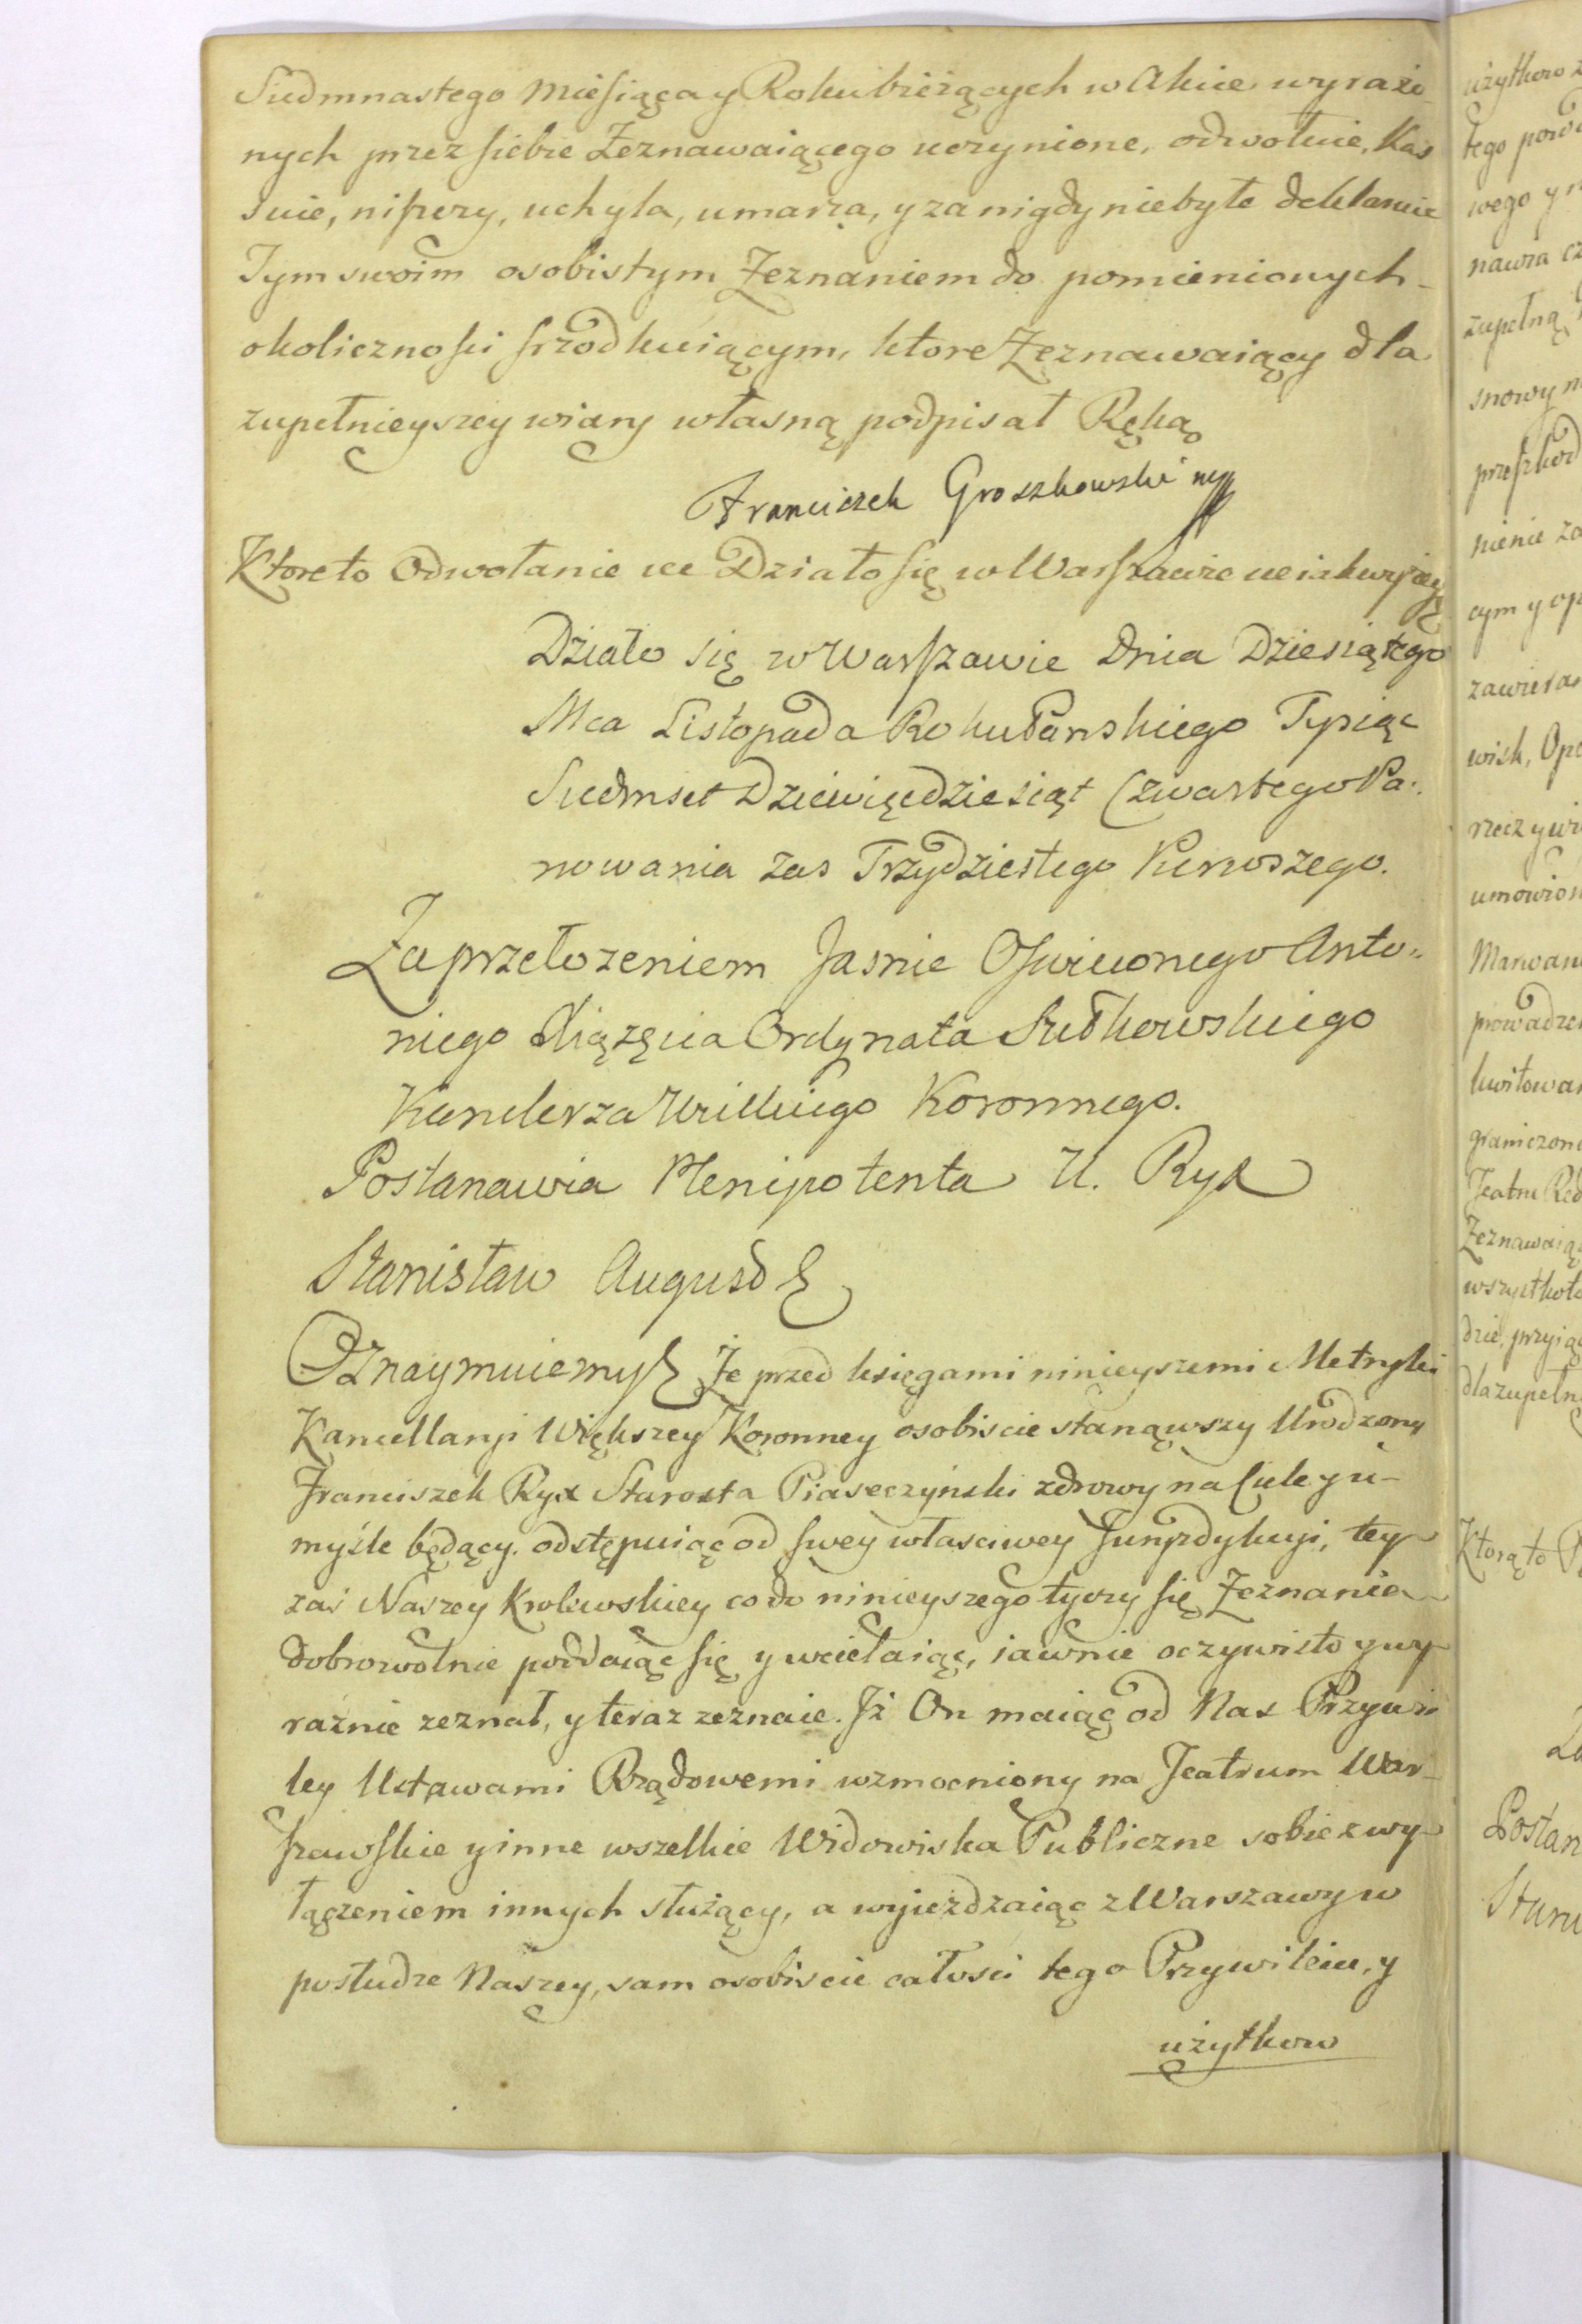 Siedmnastego Miesiąca y Roku bieżących w Akcie wyrażo
nych przez siebie Zeznawaiącego uczynione, odwołuie, Kas
suie, niszczy, uchyla, umarza, y za nigdy niebyłe deklaruie
Tym swoim osobistym Zeznaniem do pomienionych
okoliczności srzodkuiącym, ktore Zeznawaiący dla
zupełnieyszey wiary własną podpisał Ręką
Franciszek Groszkowski mp
Ktore to Odwołanie etc Działo się w Warszawie ut
Działo się w Warszawie Dnia Dziesiątego
Mca Listopada Roku Pańskiego Tysiąc
Siedmset Dziewięćdziesiąt Czwartego Pa:
nowania zas Trzydziestego Pierwszego.
Za przełożeniem Jasnie Oswieconego Anto:
niego Xiążęcia Ordynata Sułkowskiego
Kanclerza Wielkiego Koronnego.
Postanawia Plenipotenta U. Ryx
Stanisław August &
Oznaymuiemy & Że przed księgami ninieyszemi Metryki
Kancellaryi Większey Koronney osobiscie stanąwszy Urodzony
Franciszek Ryx Starosta Piaseczyński zdrowy na Ciele y u-
myśle będący. odstępuiąc od swey własciwey Juryzdykcyi, tey
zaś Naszey Krolewskiey co do ninieyszego tyczy się Zeznania
dobrowolnie poddaiąc się y wcielaiąc, iawnie oczywisto y wy-
raźnie zeznał, y teraz zeznaie. Iż On maiąc od Nas Przywi
ley Ustawami Rządowemi wzmocniony na Teatrum War-
szawskie y inne wszelkie Widowiska Publiczne sobie z wy-
łączeniem innych służący, a wyieżdzaiąc z Warszawy w
posłudze Naszey, sam osobiscie całosci tego Przywileiu, y
użytkow